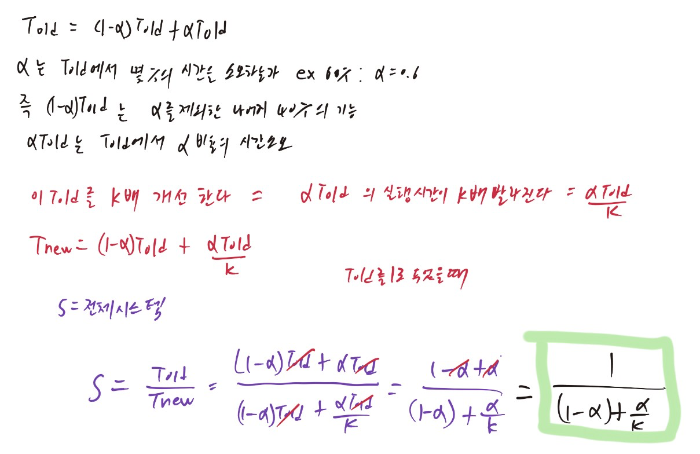 Told = (1-α)Told + αTold
α는 Told에서 몇%의 시간을 소요하는가 ex 60% : α=0.6
즉 (1-α)Told는 α를 제외한 나머지 40%의 기능
αTold는 Told에서 α 비율의 시간소요
이 Told를 k배 개선 한다 = αTold 의 실행시간이 k배 빨라진다 = αTold/K
Tnew = (1-α)Told + αTold/k
Told를 1로 두었을 때
S = 전체시스템
S = Told/Tnew = ((1-α)Told + αTold)/((1-α)Told + αTold/k) = (1-α+α)/((1-α) + α/k) = 1/((1-α)+α/k)